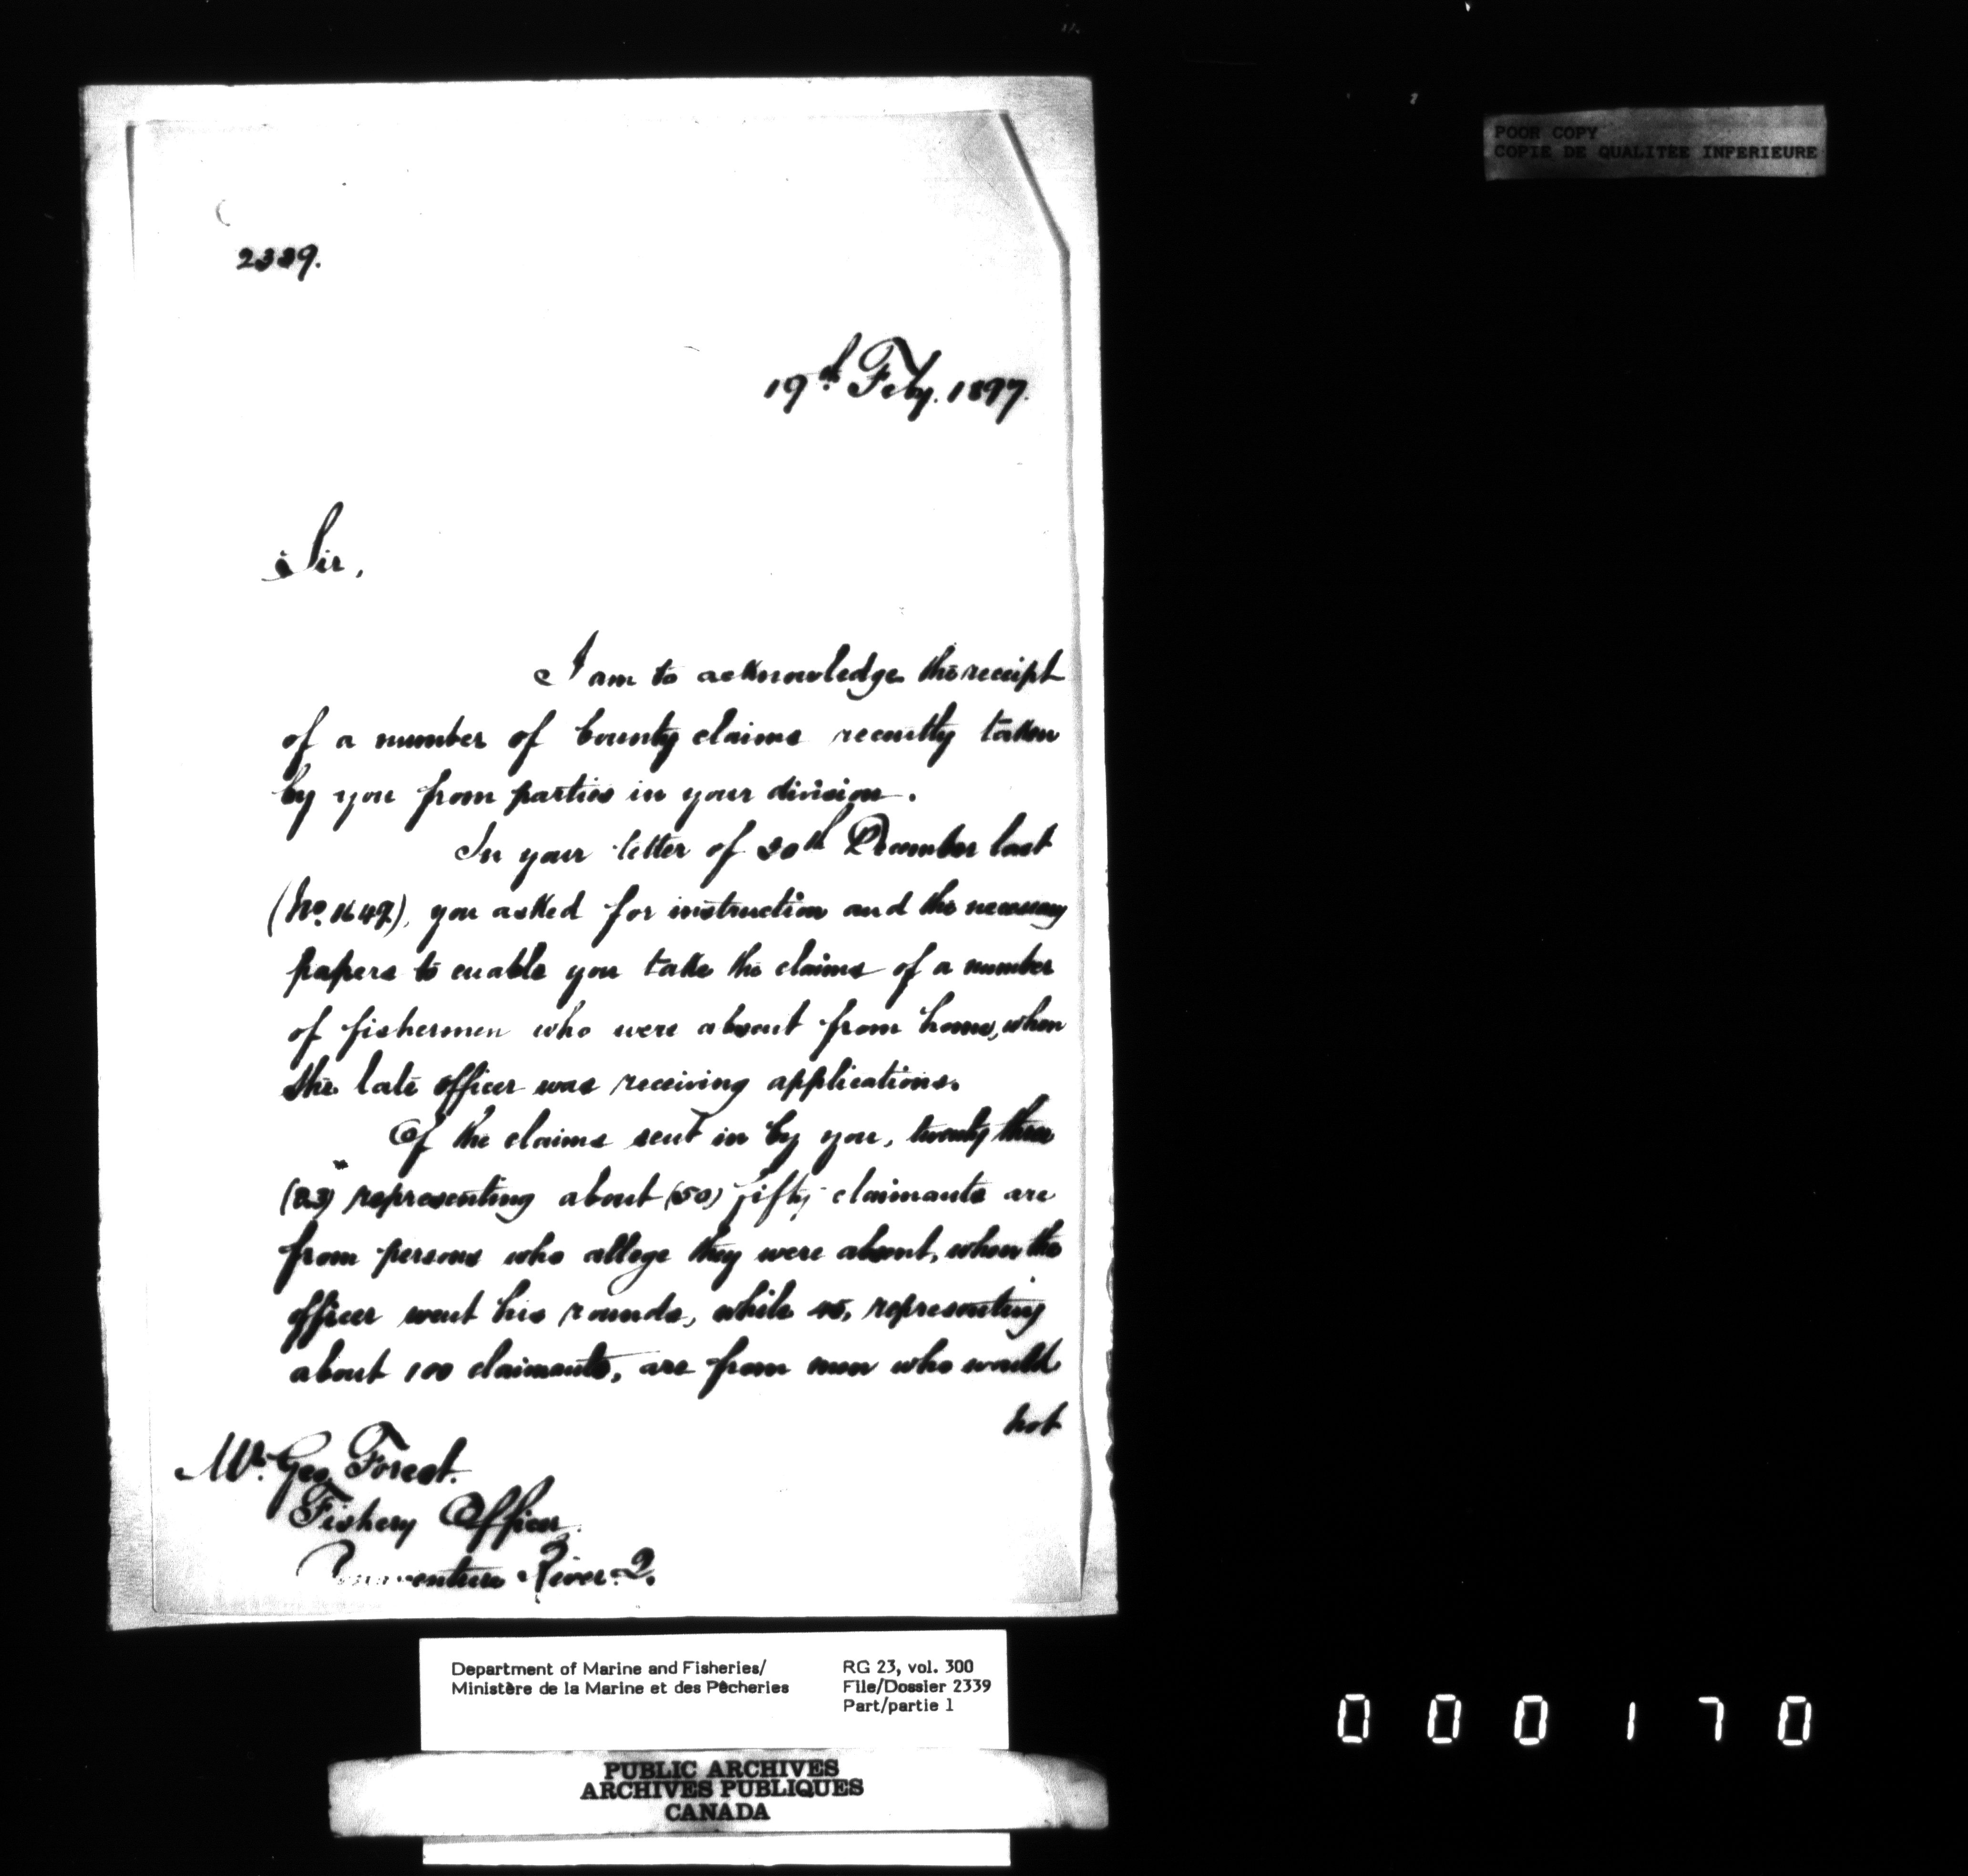 POOR COPY
COPIE DE QUALITEE INFERIEURE
2339.
19th Feby. 1897.
Sir,
I am to acknowledge the receipt
of a number of bounty claims recently taken
by you from parties in your division.
In your letter of 30th December last
(No. 1647), you asked for instruction and the necessary
papers to enable you take the claims of a number
of fishermen who were absent from home, when
the late officer was receiving applications.
Of the claims sent in by you, twenty three
(23) representing about (50) fifty claimants are
from persons who allege they were absent, when the
officer went his rounds, while 45, representing
about 100 claimants, are from men who would
not
Mr. Geo. Forest.
Fishery Officer.
Bonaventure River. Q.
Department of Marine and Fisheries/
Ministère de la Marine et des Pêcheries
RG 23, vol. 300
File/Dossier 2339
Part/partie 1
PUBLIC ARCHIVES
ARCHIVES PUBLIQUES
CANADA
000170